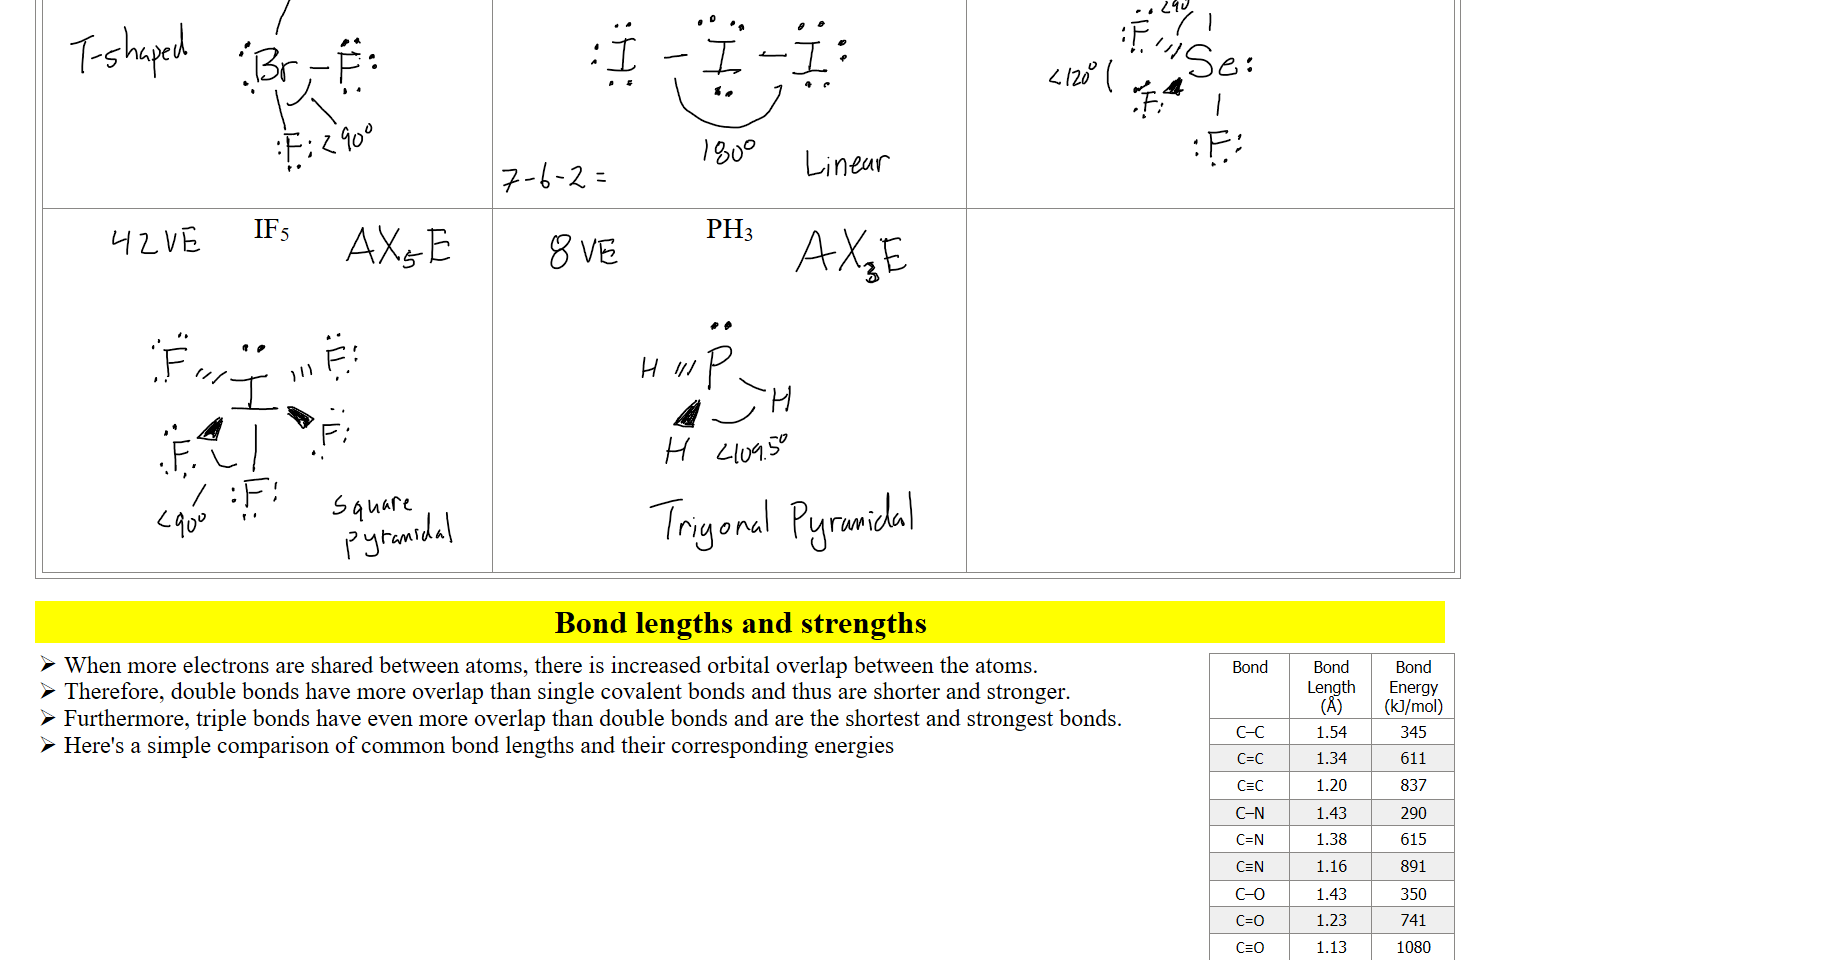 T-shaped
Br - F:
:F: <90°
:I - I - I:
180°
Linear
7-6-2 =
<90
:F Se:
<120°
:F:
:F:
42VE IF5 AX5E
F I F:
F. F:
<90° :F:
Square
pyramidal
8 VE PH3 AX3E
H P
H
H <109.5°
Trigonal Pyramidal
Bond lengths and strengths
➢ When more electrons are shared between atoms, there is increased orbital overlap between the atoms.
➢ Therefore, double bonds have more overlap than single covalent bonds and thus are shorter and stronger.
➢ Furthermore, triple bonds have even more overlap than double bonds and are the shortest and strongest bonds.
➢ Here's a simple comparison of common bond lengths and their corresponding energies
Bond Bond Length (Å) Bond Energy (kJ/mol)
C–C 1.54 345
C=C 1.34 611
C≡C 1.20 837
C–N 1.43 290
C=N 1.38 615
C≡N 1.16 891
C–O 1.43 350
C=O 1.23 741
C≡O 1.13 1080